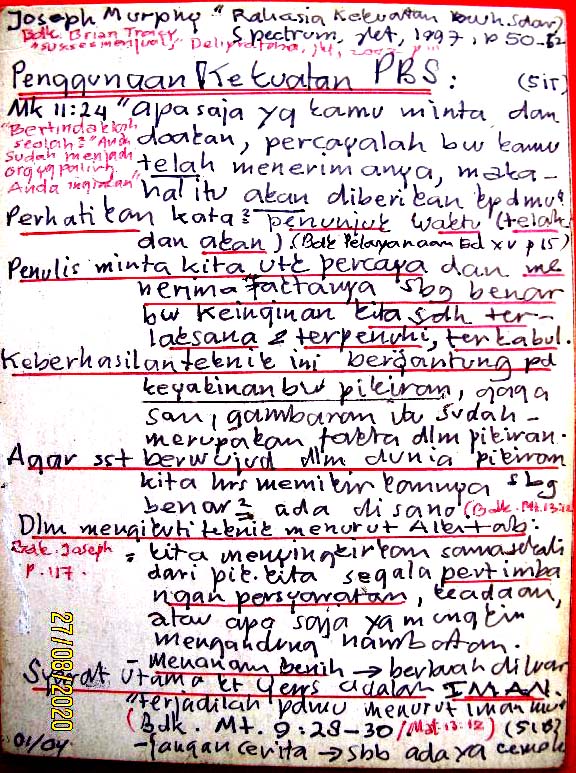 Joseph Murphy "Rahasia Kekuatan bwh. Sdar)
Bdk. Brian Tracy Spectrum, jkt, 1997, p 50-52
"sukses menjual" Delapratasa, jkt, 2002 p
Penggunaan Kekuatan PBS : (5iT)
Mk 11:24 "apa saja yg kamu minta dan
"Bertindaklah doakan, percayalah bw kamu
seolah2 "Anda
sudah menjadi telah menerimanya, maka-
org yg paling
Anda inginkan" hal itu akan diberikan kpdmu"
Perhatikan kata2 penunjuk waktu (telah
dan akan). (Bdk Pelayanaan Ed XV p 15)
Penulis minta kita utk percaya dan me
nerima faktanya sbg benar
bw keinginan kita sdh ter-
laksana & terpenuhi, terkabul.
Keberhasilan teknik ini bergantung pd
keyakinan bw pikiran, gaga
san, gambaran itu sudah-
merupakan fakta dlm pikiran.
Agar sst berwujud dlm dunia pikiran
kita hrs memikirkannya sbg
benar2 ada disana (Bdk. Mt.13:12
Dlm mengikuti teknik menurut Alkitab:
Bdk. Joseph - kita menyingkirkan samasekali
p. 117. dari pik. kita segala pertimba
ngan persyaratan, keadaan,
atau apa saja ya mungkin
mengandung hambatan.
- menanam benih → berbuah diluar
Syarat utama kt Yesus adalah IMAN.
"terjadilah pdmu menurut imanmu"
(Bdk. Mt. 9:28-30 /Mat.13:12) (5iB)
01/04 - jangan cerita → sbb ada ya cemok
27/08/2020